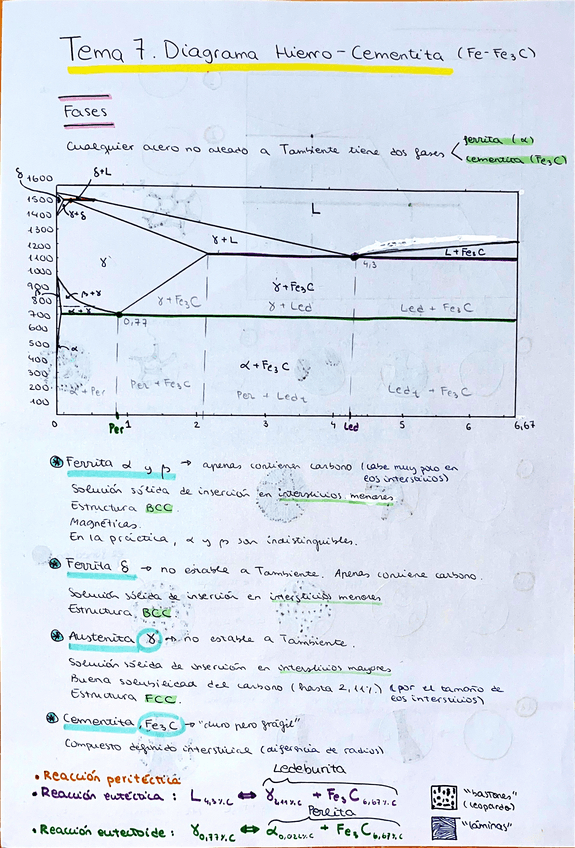 Tema 7. Diagrama Hierro-Cementita (Fe-Fe₃C)
Fases
Cualquier acero no aleado a Tambiente tiene dos fases < ferrita (α)
cementita (Fe₃C)
δ
δ+L
1600
1500
1400
γ+δ
1300
1200
1100
1000
900
800
700
600
500
400
300
200
100
L
γ+L
L+Fe₃C
4,3
γ
γ+Fe₃C
β
β+γ
γ+Fe₃C
γ+Led
Led+Fe₃C
α+γ
0,77
α
α+Fe₃C
α+Per
Per+Fe₃C
Per+Ledₜ
Ledₜ+Fe₃C
0 1 2 3 4 5 6 6,67
Per
Led
Ferrita α y β → apenas contienen carbono (cabe muy poco en
los intersticios)
Solución sólida de inserción en intersticios menores
Estructura BCC.
Magnéticas.
En la práctica, α y β son indistinguibles.
Ferrita δ → no estable a Tambiente. Apenas contiene carbono.
Solución sólida de inserción en intersticios menores
Estructura BCC.
Austenita γ → no estable a Tambiente.
Solución sólida de inserción en intersticios mayores
Buena solubilidad del carbono (hasta 2,11%) (por el tamaño de
los intersticios)
Estructura FCC.
Cementita Fe₃C → "duro pero frágil"
Compuesto definido intersticial (diferencia de radios)
Ledeburita
• Reacción peritéctica:
• Reacción eutéctica: L 4,3%C ⇔ γ 2,11%C + Fe₃C 6,67%C
"bastones"
(leopardo)
Perlita
• Reacción eutectoide: γ 0,77%C ⇔ α 0,02%C + Fe₃C 6,67%C
"láminas"